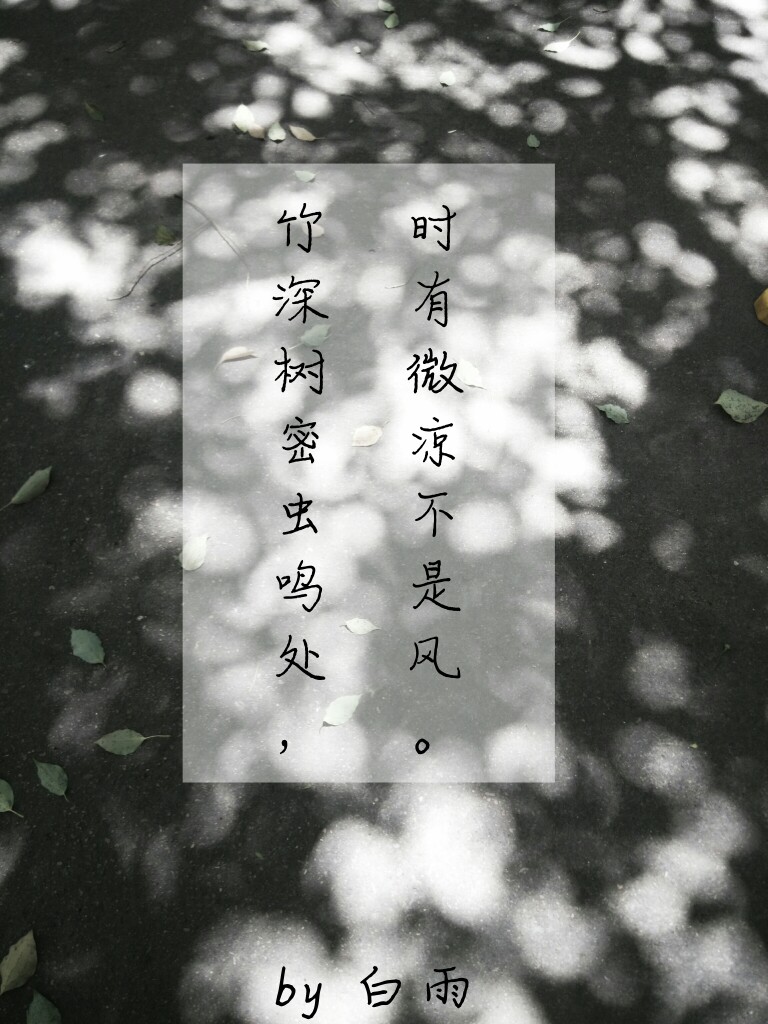 竹深树密虫鸣处，
时有微凉不是风。
by 白雨